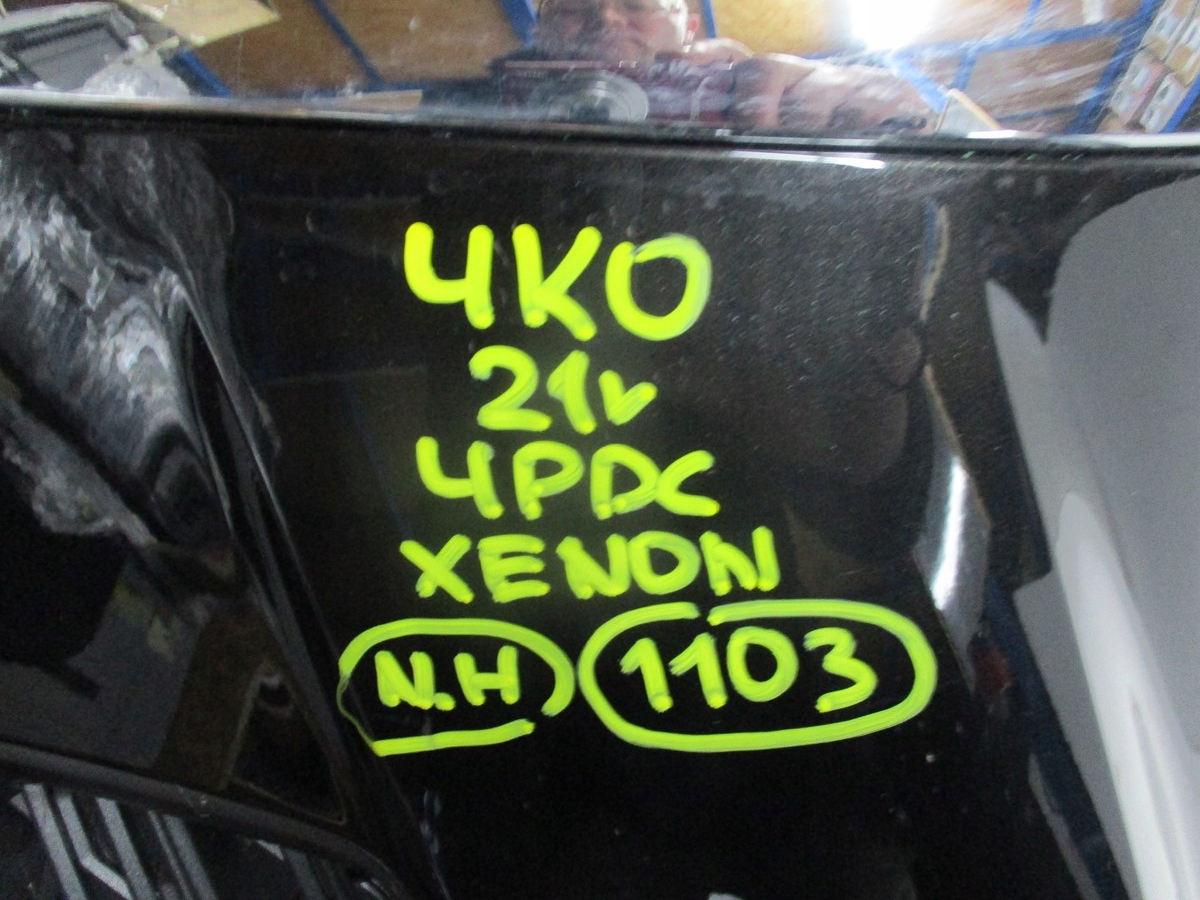 4KO
21r
4PDC
XENON
N.H 1103